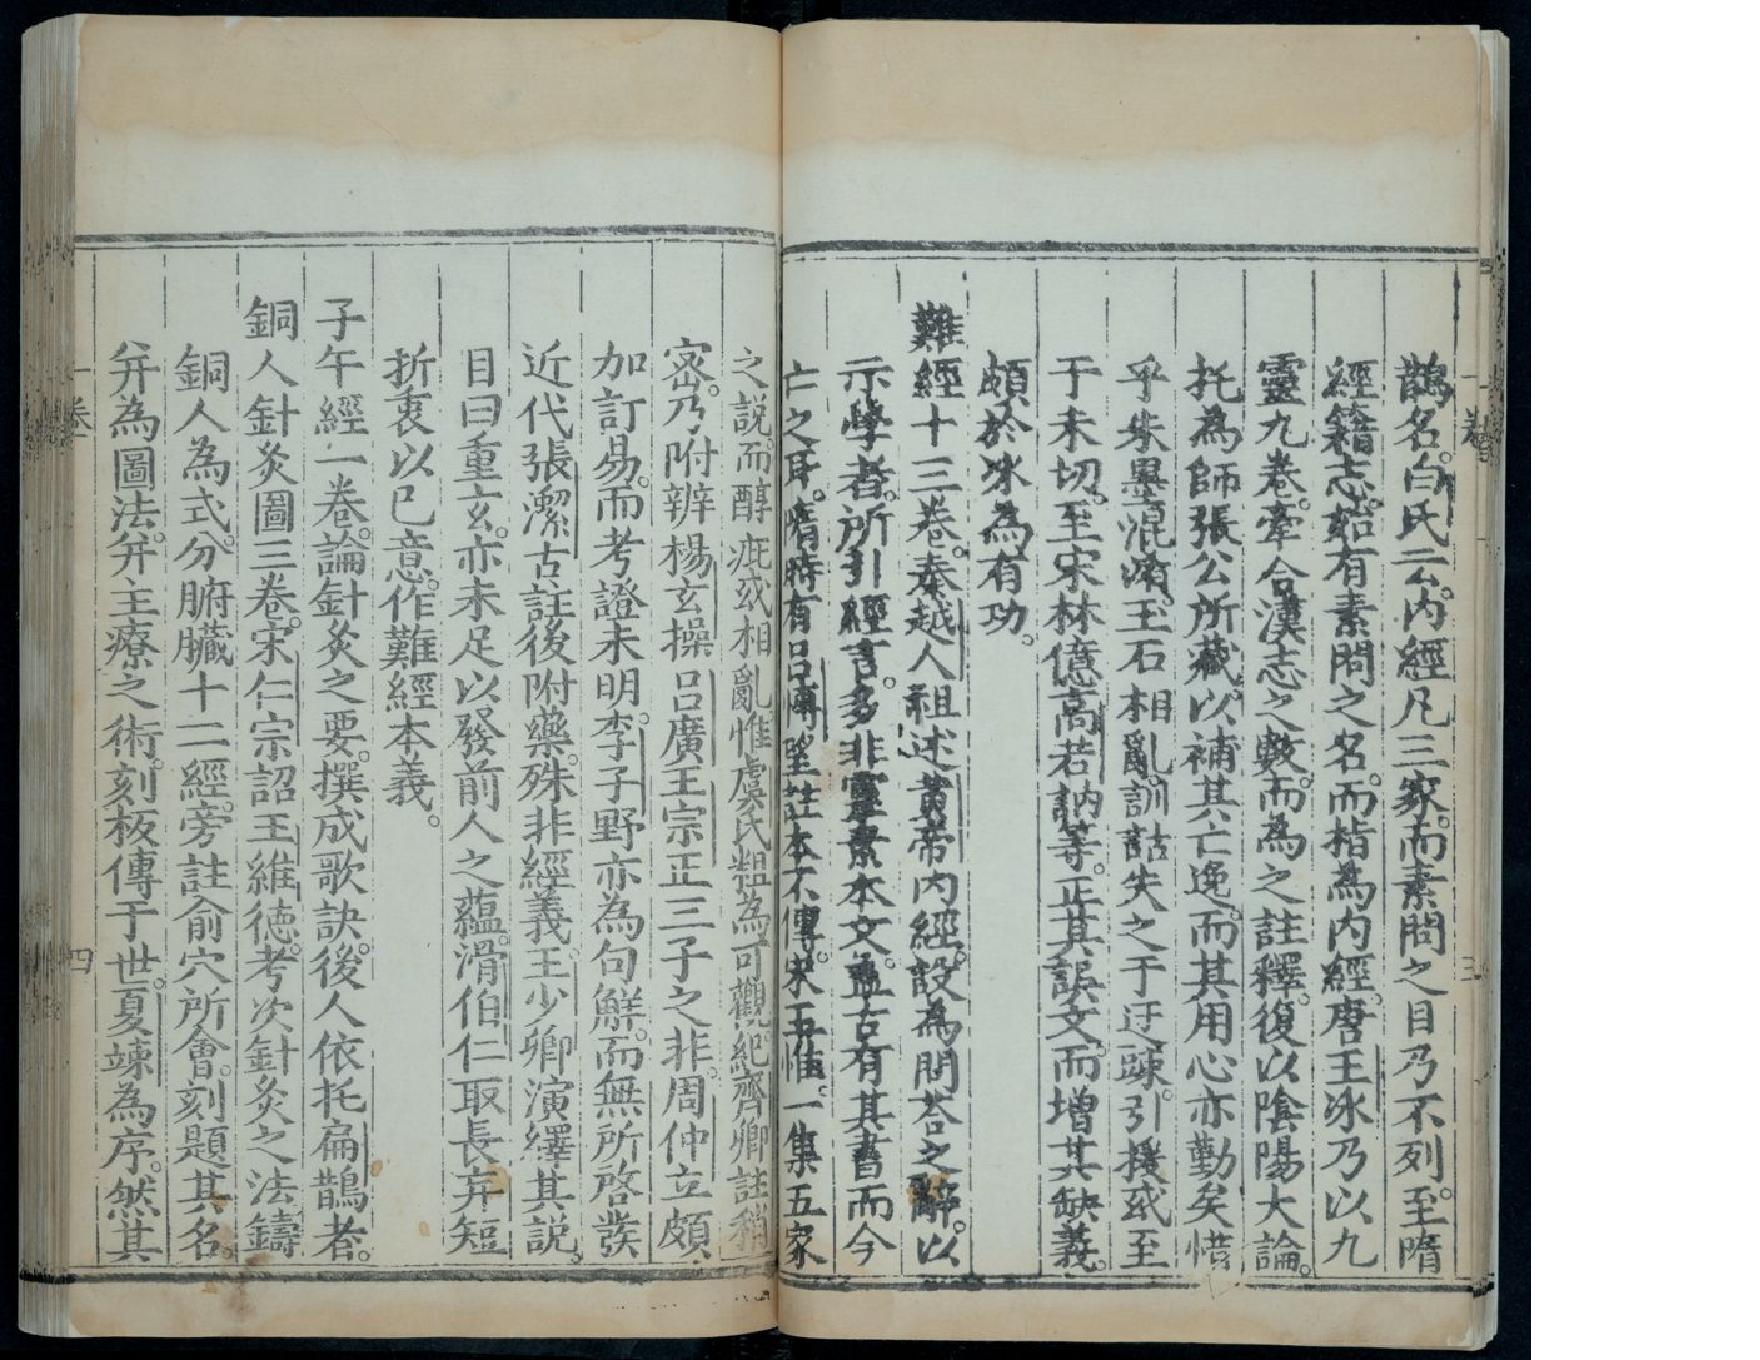 鵲名。白氏云。内經凡三家。而素問之目乃不列。至隋
經籍志。始有素問之名。而指為内經。唐王冰乃以九
靈九卷。牽合漢志之數。而為之註釋。復以陰陽大論。
托為師張公所藏。以補其亡逸。而其用心亦勤矣惜
乎朱墨混淆。玉石相亂。訓詁失之于迂疎。引援或至
于未切。至宋林億高若訥等。正其誤文。而增其缺義。
頗於冰為有功。
難經十三卷。秦越人祖述黄帝内經。設為問荅之辭。以
示學者。所引經言。多非靈素本文。盖古有其書而今
亡之耳。隋時有吕博望註本不傳。宋王惟。一集五家
之說。而醇疵或相亂。惟虞氏粗為可觀。紀齊卿註稍
宻。乃附辨楊玄操吕廣王宗正三子之非。周仲立頗
加訂易。而考證未明。李子野亦為句解。而無所啓發
近代張潔古註後附藥。殊非經義。王少卿演繹其說。
目曰重玄。亦未足以發前人之蘊。滑伯仁取長弃短
折衷以已意。作難經本義。
子午經一卷。論針灸之要。撰成歌訣。後人依托扁鵲者。
銅人針灸圖三卷。宋仁宗詔王維德。考次針灸之法鑄
銅人為式。分腑臟十二經。旁註俞穴所會。刻題其名。
并為圖法。并主療之術。刻板傳于世。夏竦為序。然其
一卷
三
一卷
四